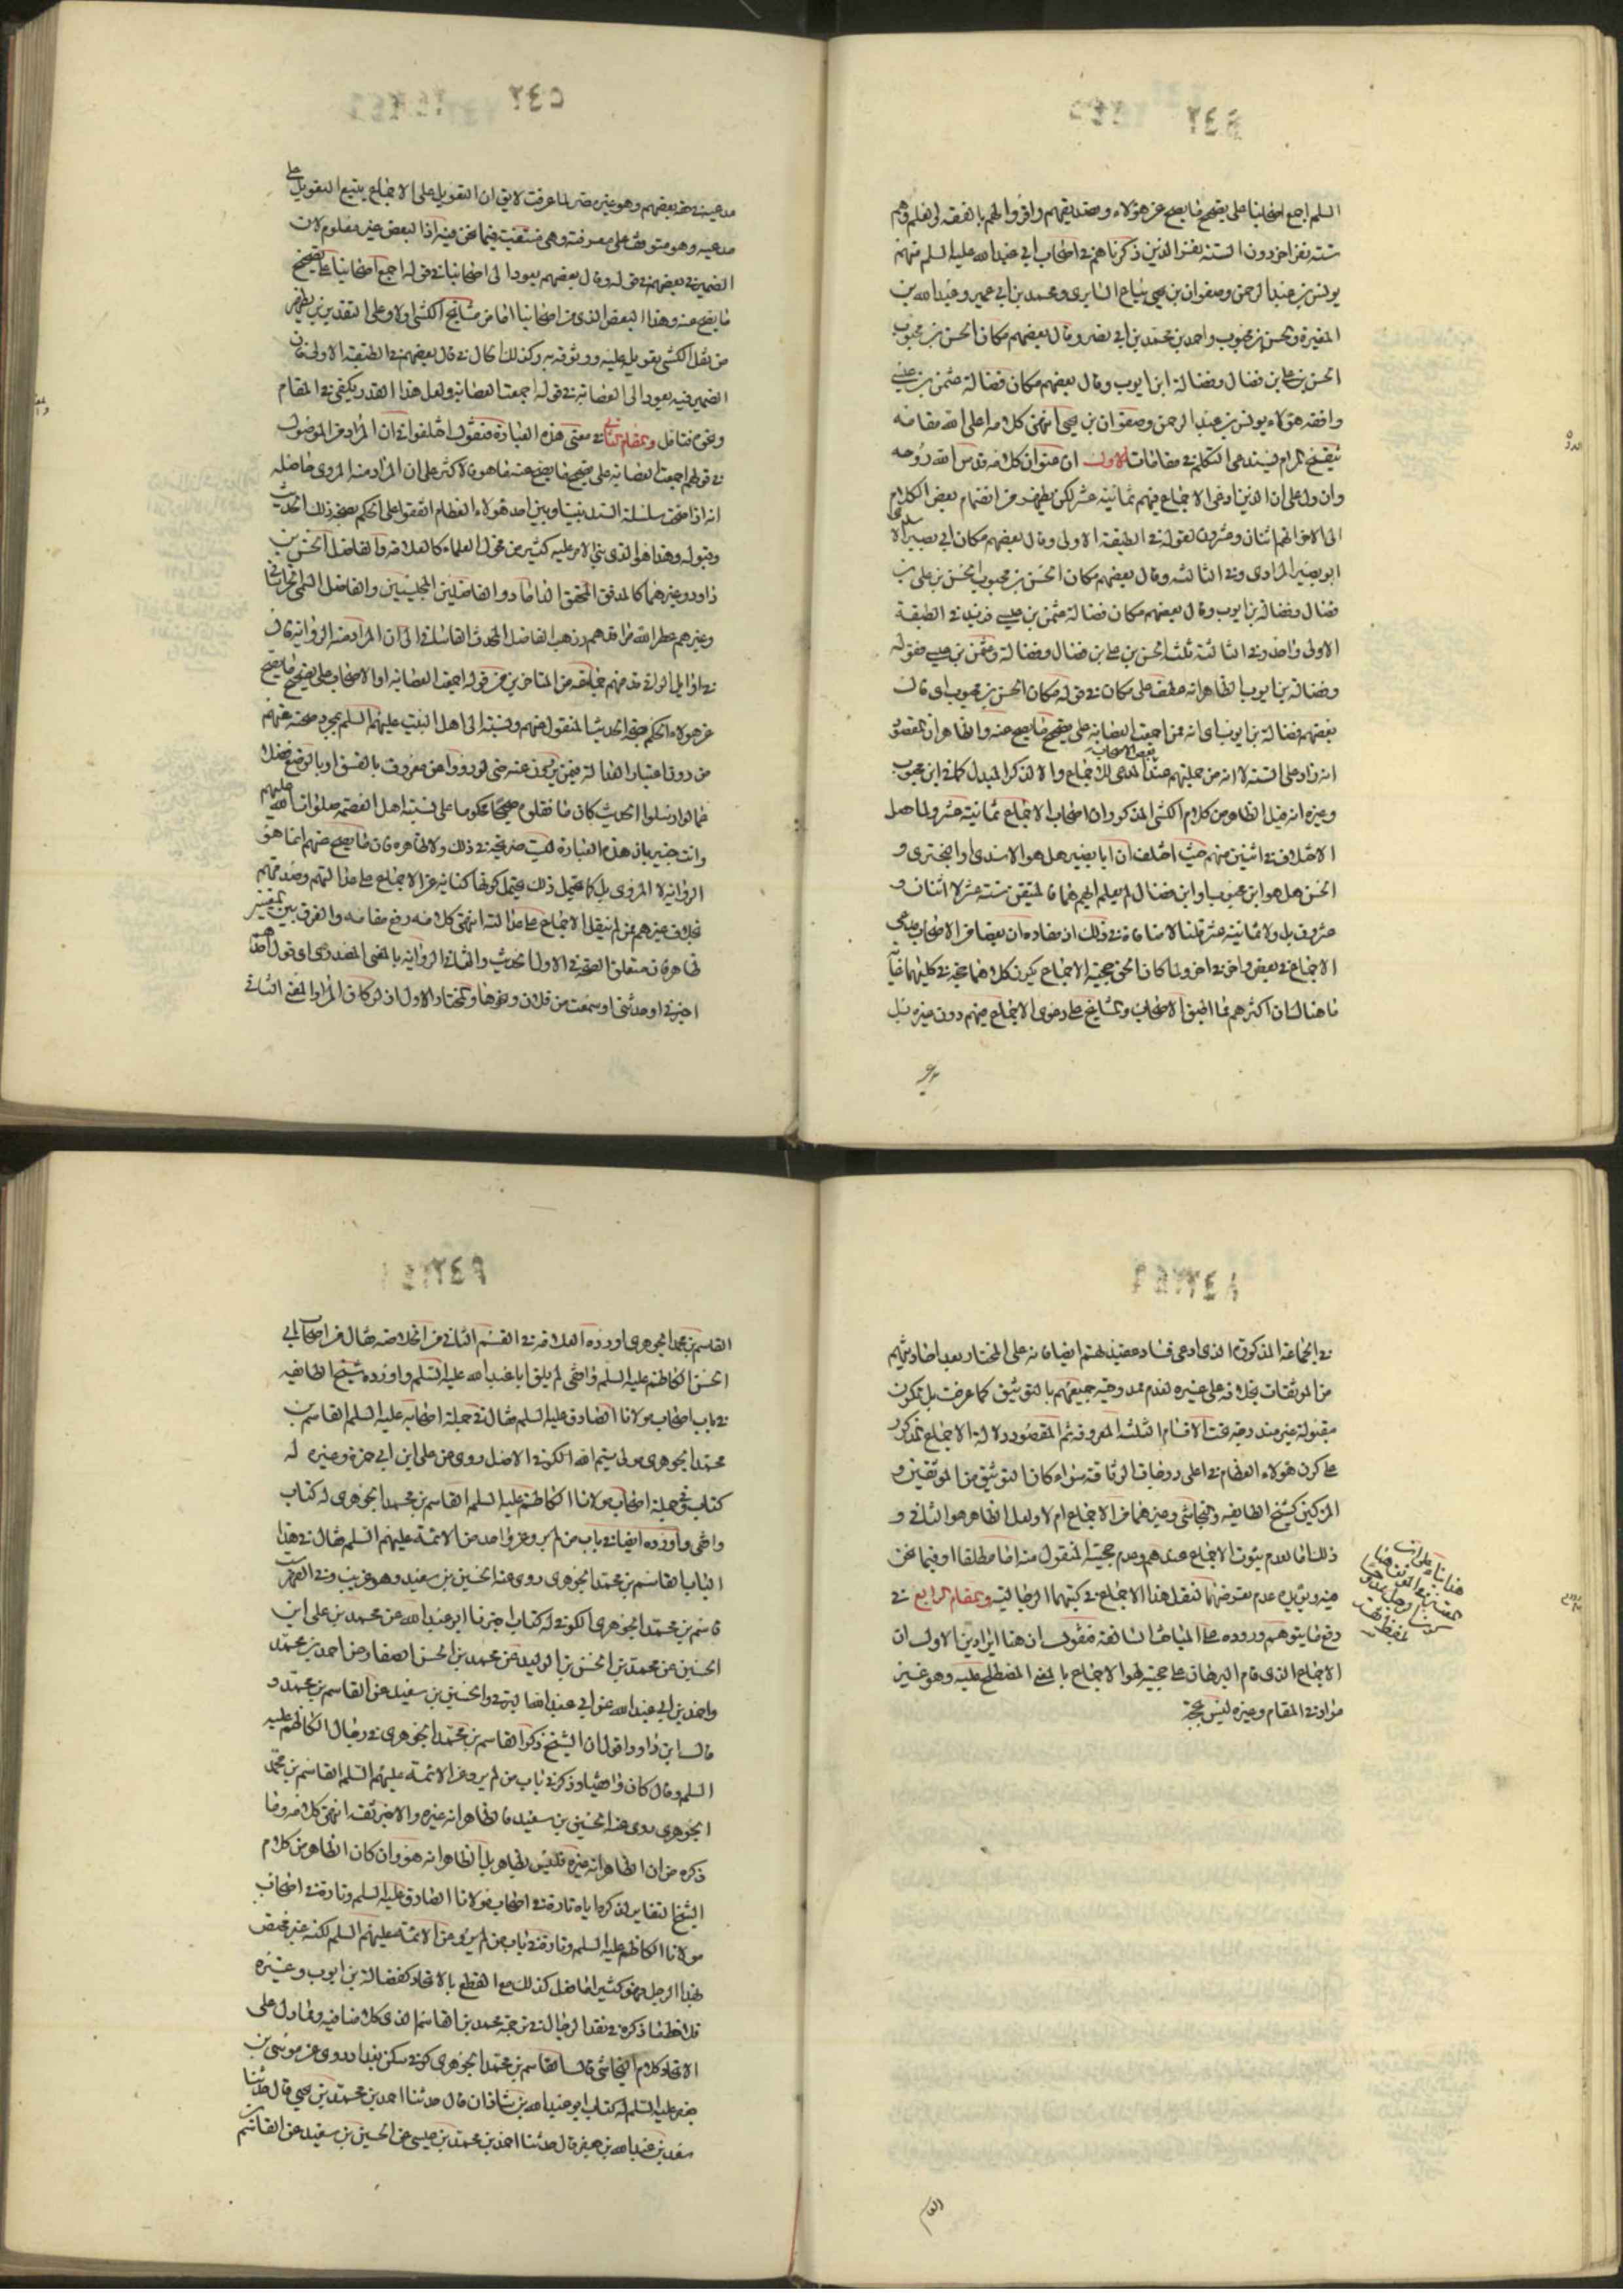 السلم اجمع اصحابنا على تصحيح ما يصح عن هؤلاء وتصديقهم واقروا لهم بالفقه والعلم وهم
ستة نفر اخر دون الستة نفر الذين ذكرناهم في اصحاب ابي عبد الله عليه السلم منهم
يونس بن عبد الرحمن وصفوان بن يحيى بياع السابري ومحمد بن ابي عمير وعبد الله بن
المغيرة والحسن بن محبوب واحمد بن محمد بن ابي نصر وقال بعضهم مكان الحسن بن محبوب
الحسن بن علي بن فضال وفضالة ابن ايوب وقال بعضهم مكان فضالة عثمن بن عيسى
وافقه هؤلاء يونس بن عبد الرحمن وصفوان بن يحيى انتهى كلامه اعلى الله مقامه
تنقيح المرام يستدعي التكلم في مقامات الاول ان عنوان كلامه قدس الله روحه
وان دل على ان الذين ادعى الاجماع فيهم ثمانية عشر لكن يظهر من انضمام بعض الكلام
الى الاخر انهم اثنان وعشرون لقوله في الطبقة الاولى وقال بعضهم مكان ابي بصير الاسدي
ابو بصير المرادي وفي الثالثة وقال بعضهم مكان الحسن بن محبوب الحسن بن علي بن
فضال وفضالة بن ايوب وقال بعضهم مكان فضالة عثمن بن عيسى فزيد في الطبقة
الاولى واحد وفي الثالثة ثلث الحسن بن علي بن فضال وفضالة وعثمن بن عيسى فقوله
وفضالة بن ايوب الظاهر انه عطف على مكان في قوله مكان الحسن بن محبوب اي قال
بعضهم فضالة بن ايوب اي انه ممن اجمعت العصابة على تصحيح ما يصح عنه والظاهر ان المقصود
انه زاد على الستة لا انه من جملتهم عند المدعي لذلك الاجماع والا لذكر المبدل كما في ابن محبوب
وغيره انه قيل الظاهر من كلام الكشي المذكور ان اصحاب الاجماع ثمانية عشر ولما حصل
الاختلاف في اثنين منهم حيث اختلف ان ابا بصير هل هو الاسدي او البختري و
الحسن هل هو ابن محبوب او ابن فضال لم يعلم ايهم هما فالمتيقن ستة عشر لا اثنان و
عشرون بل ولا ثمانية عشر قلنا لا منافاة في ذلك اذ مفاده ان بعضا من الاصحاب يدعي
الاجماع في بعض واخر في اخر ولما كان الحق حجية الاجماع يكون كلاهما حجة في كليهما غاية
ما هنالك ان اكثرهم مما اطبق الاصحاب والمشايخ على دعوى الاجماع فيهم دون غيره بل
مدعيه في حقه بعضهم وهو غير ضر لما عرفت لا يق ان التعويل على الاجماع يتبع التعويل على
مدعيه وهو متوقف على معرفته وهي منتفية فيما نحن فيه اذ البعض غير معلوم لان
الضمير في بعضهم في قوله وقال بعضهم يعود الى اصحابنا في قوله اجمع اصحابنا على تصحيح
ما يصح عنه وهذا البعض الذي من اصحابنا اما من مشايخ الكشي اولا وعلى التقديرين يظهر
من نقل الكشي تعويله عليه ووثوقه به وكذلك الحال في قال بعضهم في الطبقة الاولى فان
الضمير فيه يعود الى العصابة في قوله اجمعت العصابة ولعل هذا القدر يكفي في المقام
ونحوه فتامل والمقام الثاني في معنى هذه العبارة فنقول اختلفوا في ان المراد من الموصول
في قولهم اجمعت العصابة على تصحيح ما يصح عنه ما هو فالاكثر على ان المراد منه المروى حاصله
انه اذا صحت سلسلة السند بيننا وبين احد هؤلاء العظام اتفقوا على الحكم بصحة ذلك الحديث
وقبوله وهذا هو الذي بنى الامر عليه كثير من فحول العلماء كالعلامة والفاضل الحسن بن
داود وغيرهما كالمدقق المحقق الداماد والفاضلين المجلسيين والفاضل السمي الخراساني
وغيرهم عطر الله مراقدهم وذهب الفاضل المحدث القاساني الى ان المراد منه الرواية قال
في اوايل الوافي قد فهم جماعة من المتاخرين من قوله اجمعت العصابة او الاصحاب على تصحيح ما يصح
عن هؤلاء الحكم بصحة الحديث المنقول عنهم ونسبته الى اهل البيت عليهم السلم بمجرد صحته عنهم
من دون اعتبار العدالة فيمن يروون عنه حتى لو رووا عن معروف بالفسق او بالوضع فضلا
عما لو ارسلوا الحديث كان ما نقلوه صحيحا محكوما على نسبته اهل العصمة صلوات الله عليهم
وانت خبير بان هذه العبارة ليست صريحة في ذلك ولا ظاهره فان ما يصح عنهم انما هو
الرواية لا المروي بل كما يحتمل ذلك يحتمل كونها كناية عن الاجماع على عدالتهم وصدقهم
بخلاف غيرهم ممن لم ينقل الاجماع على عدالته انتهى كلامه رفع مقامه والفرق بين التفسيرين
ظاهر فان متعلق الصحة في الاول الحديث والثاني الرواية بالمعنى المصدري اي قول احدهم
اخبرني او حدثني او سمعت من فلان ونحوها والمختار الاول اذ لو كان المراد المعنى الثاني
في الجماعة المذكورة الذي ادعى فساد عقيدتهم ايضا فانه على المختار يعد احاديثهم
من الموثقات بخلافه على غيره لعدم ممدوحية جميعهم بالتوثيق كما عرفت بل تكون
مقبولة غير مندرجة تحت الاقسام الثلثة المعروفة ثم المقصود دلالة الاجماع المذكور
على كون هؤلاء العظام في اعلى درجات الوثاقة سواء كان التوثيق من الموثقين و
المزكين كشيخ الطايفة والنجاشي وغيرهما من الاجماع ام لا ولعل الظاهر هو الثاني و
ذلك اما لعدم ثبوت الاجماع عندهم وعدم حجية المنقول منه اما مطلقا او فيما نحن
فيه ويؤيده عدم تعرضهما لنقل هذا الاجماع في كتبهما الرجالية والمقام الرابع في
دفع ما يتوهم وروده على المباحث السالفة فنقول ان هنا ايرادين الاول ان
الاجماع الذي قام البرهان على حجيته لهو الاجماع بالمعنى المصطلح عليه وهو غير
مراد في المقام وغيره ليس بحجة
القاسم بن محمد الجوهري اورده العلامة في القسم الثاني من الخلاصة فقال من اصحاب ابي
الحسن الكاظم عليه السلم واقفي لم يلق ابا عبد الله عليه السلم واورده شيخ الطايفه
في باب اصحاب مولانا الصادق عليه السلم فقال في جملة اصحابه عليه السلم القاسم بن
محمد الجوهري مولى تيم الله الكوفي الاصل روى عن علي ابن ابي حمزة وغيره له
كتاب وفي جملة اصحاب مولانا الكاظم عليه السلم القاسم بن محمد الجوهري له كتاب
واقفي واورده ايضا في باب من لم يرو عن واحد من الائمة عليهم السلم فقال في هذا
الباب القاسم بن محمد الجوهري روى عنه الحسين بن سعيد وهو غريب وفي الفهرست
قاسم بن محمد الجوهري الكوفي له كتاب اخبرنا ابو عبد الله عن محمد بن علي ابن
الحسين عن محمد بن الحسن بن الوليد عن محمد بن الحسن الصفار عن احمد بن محمد
واحمد بن ابي عبد الله عن ابي عبد الله البرقي والحسين بن سعيد عن القاسم بن محمد و
قال ابن داود اقول ان الشيخ ذكر القاسم بن محمد الجوهري في رجال الكاظم عليه
السلم وقال كان واقفيا وذكر في باب من لم يرو عن الائمة عليهم السلم القاسم بن محمد
الجوهري روى عنه الحسين بن سعيد فالظاهر انه غيره والاخير ثقة انتهى كلامه وما
ذكره من ان الظاهر انه غيره فليس بظاهر بل الظاهر انه هو وان كان الظاهر من كلام
الشيخ التغاير لذكره اياه تارة في اصحاب مولانا الصادق عليه السلم وتارة في اصحاب
مولانا الكاظم عليه السلم وتارة في باب من لم يرو عن الائمة عليهم السلم لكنه غير مختص
بهذا الرجل فهو كثيرا ما فعل كذلك مع القطع بالاتحاد كفضالة بن ايوب وغيره
فلاحظ ما ذكره في نقد الرجال في ترجمة محمد بن القاسم الذي كلامنا فيه ومما دل على
الاتحاد كلام النجاشي قال القاسم بن محمد الجوهري كوفي سكن بغداد روى عن موسى بن
جعفر عليه السلم له كتاب ابو عبد الله بن شاذان قال حدثنا احمد بن محمد بن يحيى قال حدثنا
سعد بن عبد الله بن جعفر قال حدثنا احمد بن محمد بن عيسى عن الحسين بن سعيد عن القاسم